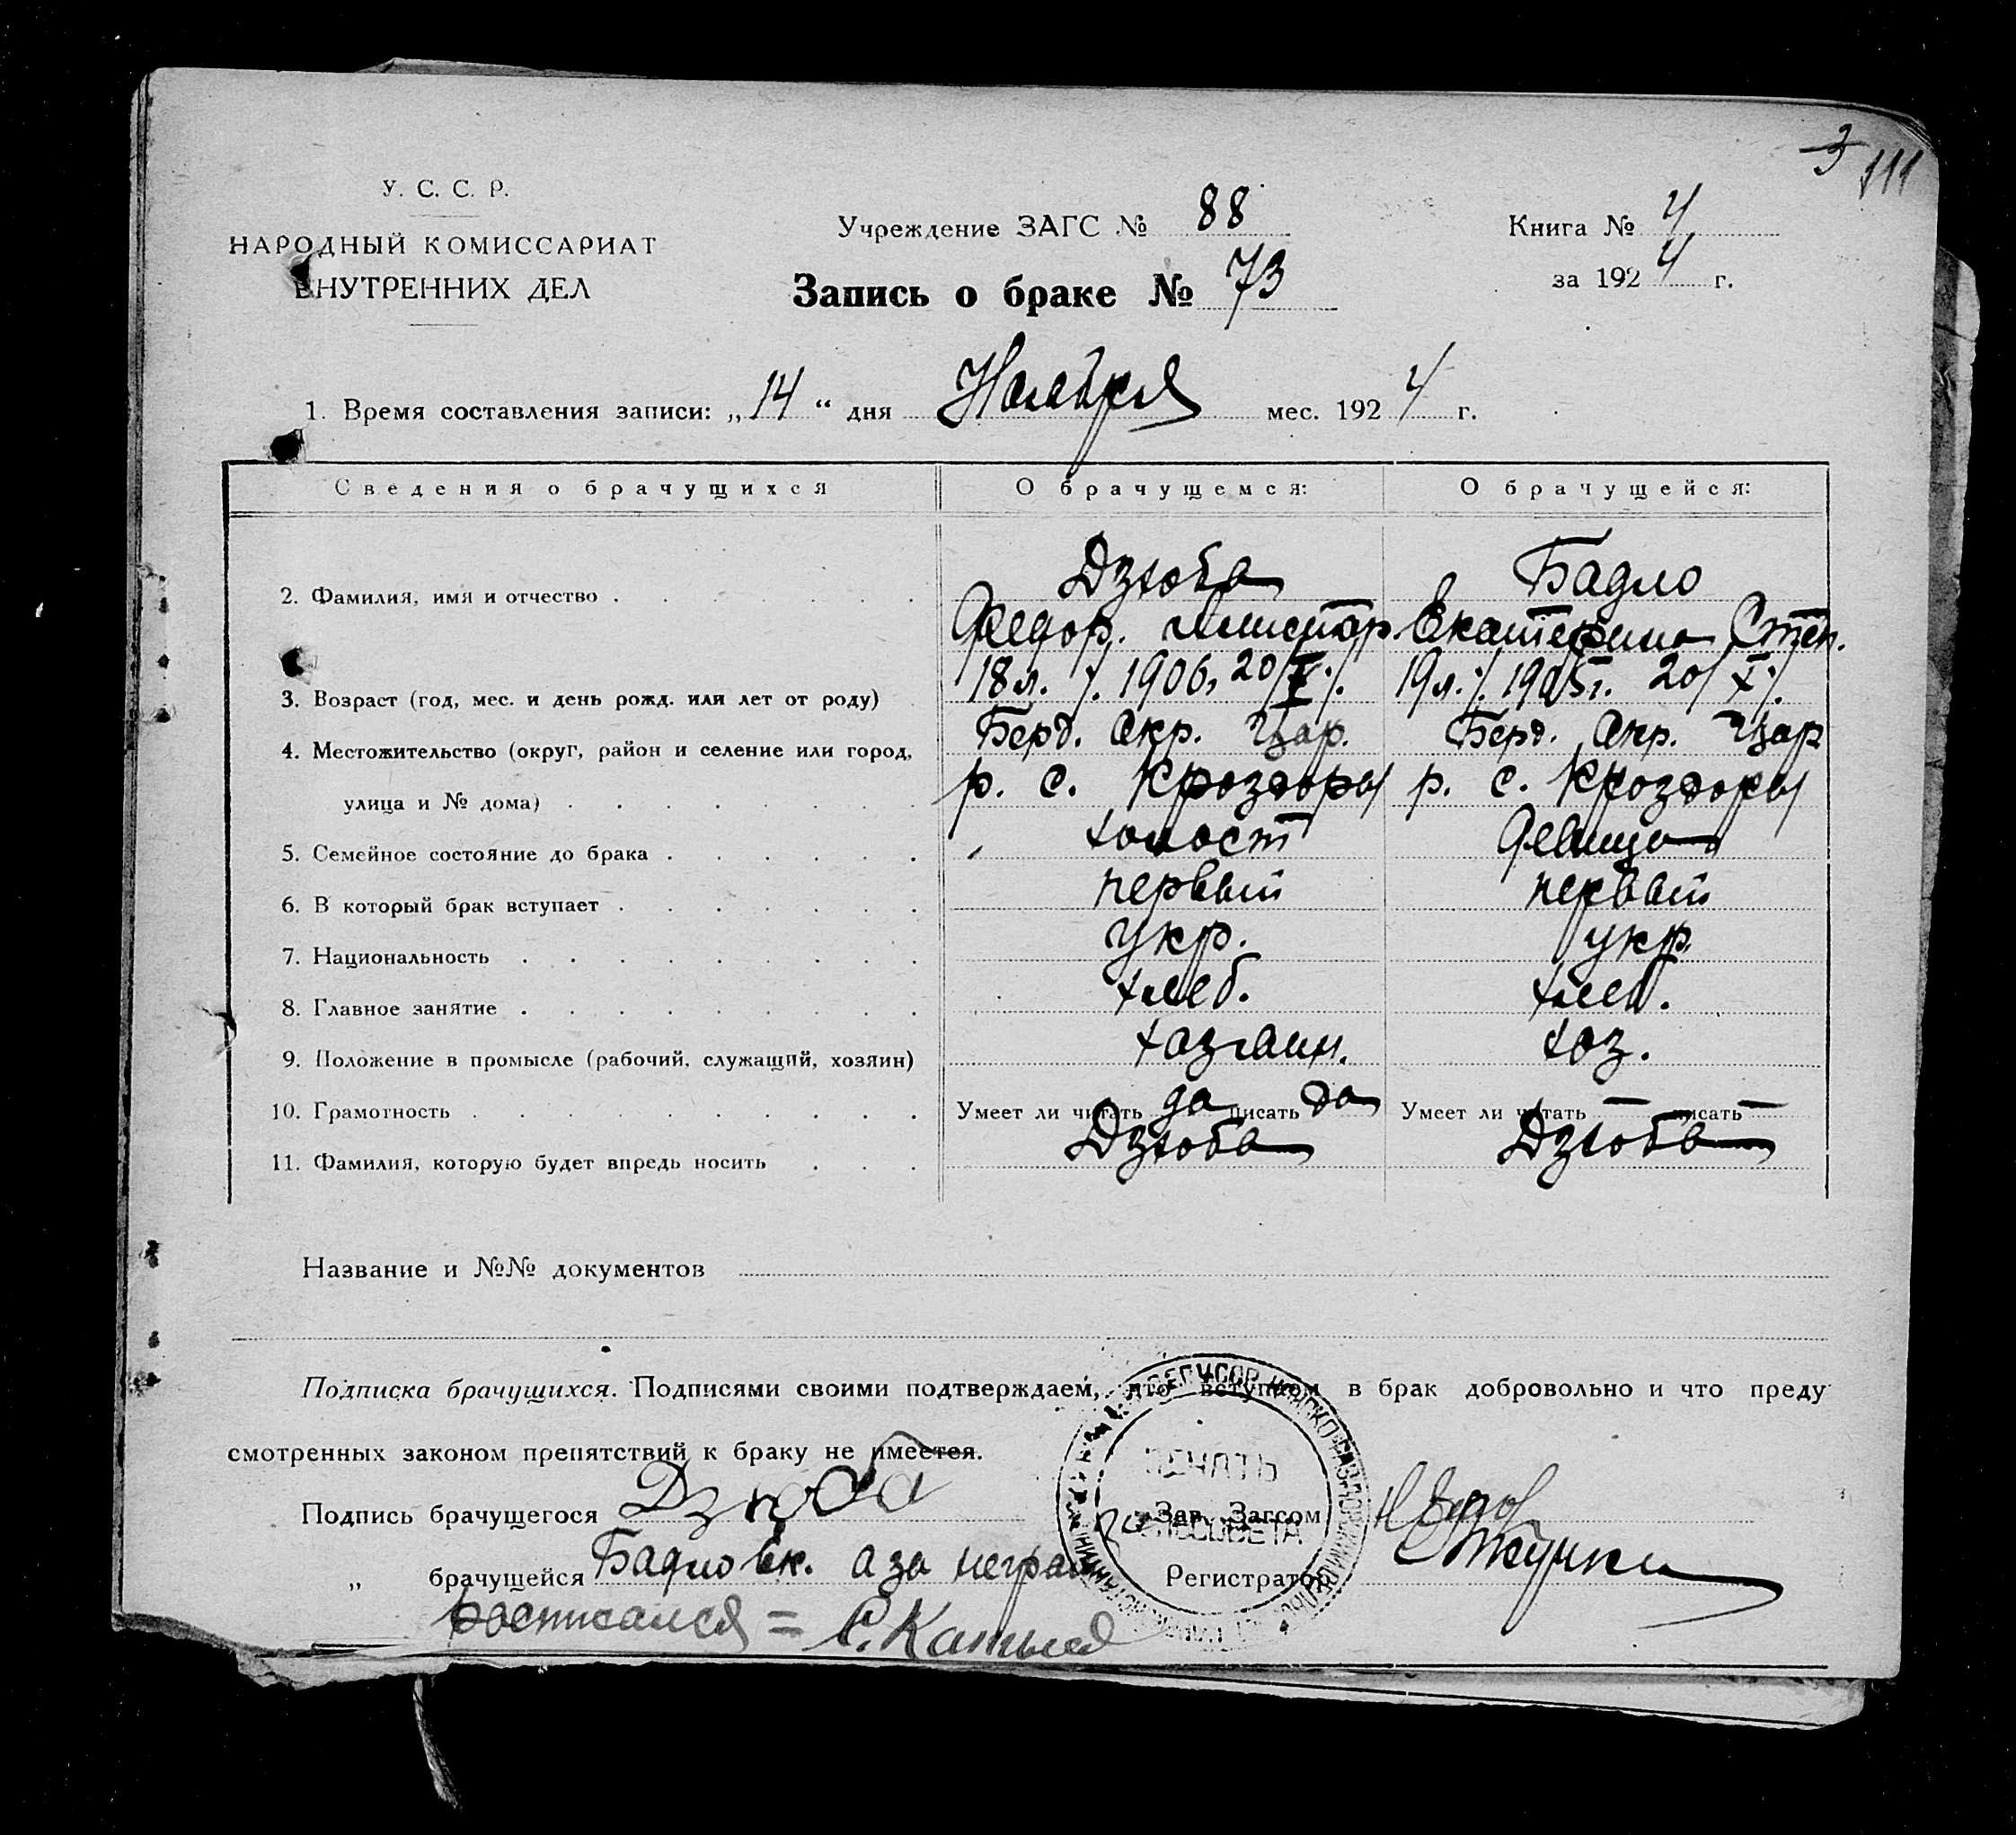 3 111
У. С. С. Р.
НАРОДНЫЙ КОМИССАРИАТ
ВНУТРЕННИХ ДЕЛ
Учреждение ЗАГС № 88
Запись о браке № 73
Книга № 4
за 1924 г.
1. Время составления записи: „14“ дня Ноября мес. 1924 г.
Сведения о брачущихся О брачущемся: О брачущейся:
Дзюба Бадло
2. Фамилия, имя и отчество
Федор. Екатерина Степ.
3. Возраст (год, мес. и день рожд. или лет от роду) 18л. 1906, 20/ 19л. 1905г. 20/X
4. Местожительство (округ, район и селение или город, Берд. Окр. Цар. Берд. Окр. Цар
улица и № дома) р. с. р. с.
5. Семейное состояние до брака холост девица
6. В который брак вступает первый первый
7. Национальность укр. укр.
8. Главное занятие хлеб. хлеб.
9. Положение в промысле (рабочий, служащий, хозяин) хозяин. хоз.
10. Грамотность Умеет ли читать да писать да Умеет ли читать — писать —
11. Фамилия, которую будет впредь носить Дзюба Дзюба
Название и №№ документов
Подписка брачущихся. Подписями своими подтверждаем, что вступаем в брак добровольно и что преду
смотренных законом препятствий к браку не имеется.
Подпись брачущегося Дзюба Зав. Загсом
„ брачущейся Бадло Ек. а за неграм Регистратор
Росписался = С.
ПЕЧАТЬ
СЕЛЬСОВЕТА